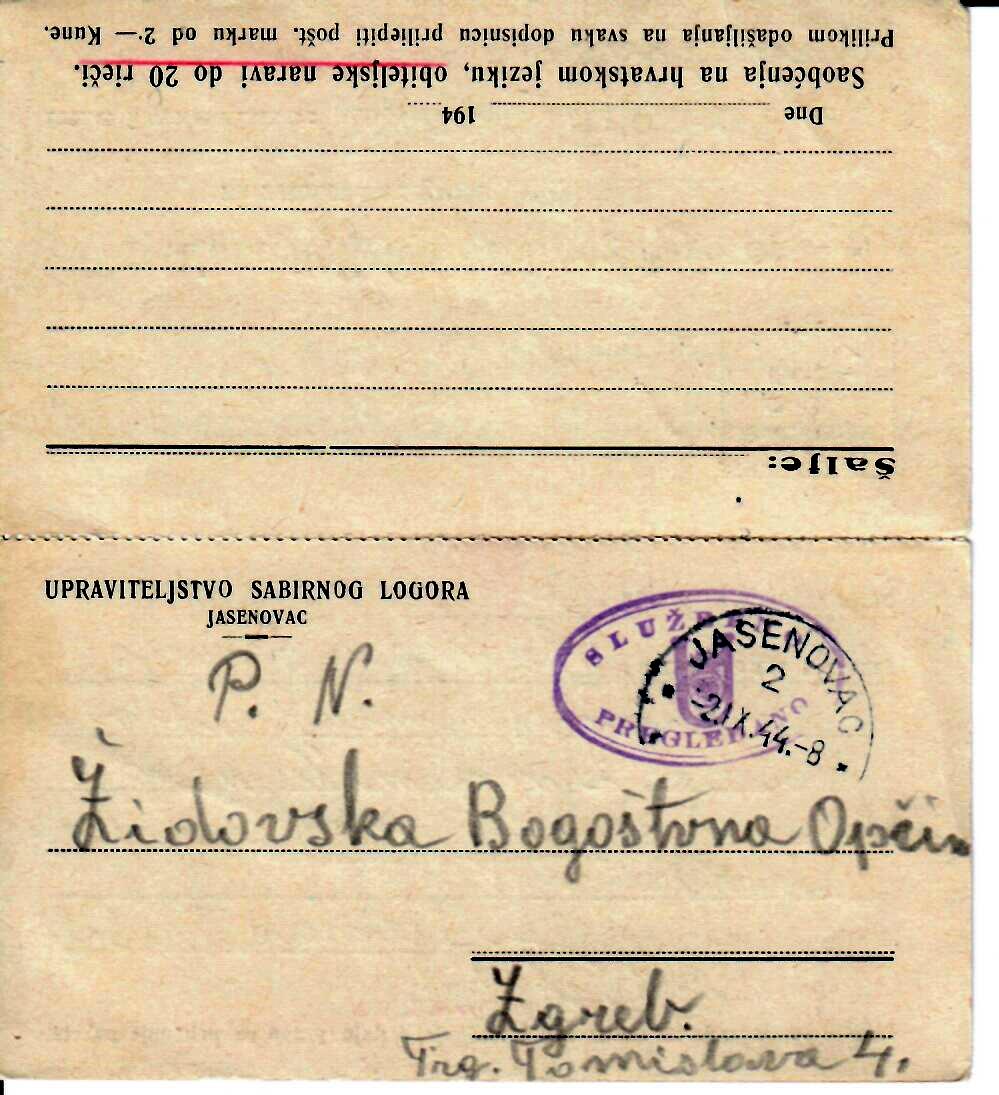 Šalje:
Dne 194
Saobćenja na hrvatskom jeziku, obiteljske naravi do 20 rieči.
Prilikom odašiljanja na svaku dopisnicu priliepiti pošt. marku od 2·— Kune.
UPRAVITELJSTVO SABIRNOG LOGORA
JASENOVAC
PREGLEDANO
U
JASENOVAC
2
-2.IX.44.-8
P. N.
Židovska Bogoštovna Općin
Zgreb.
Trg. Tomislava 4.